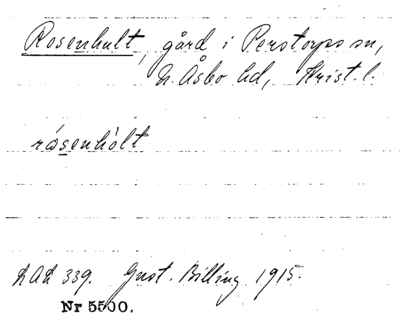 Rosenhult, gård i Perstorps sn,
N. Åsbo hd, Krist. l.
rósenhòlt
LAL 339. Gust. Billing 1915.
Nr 5500.